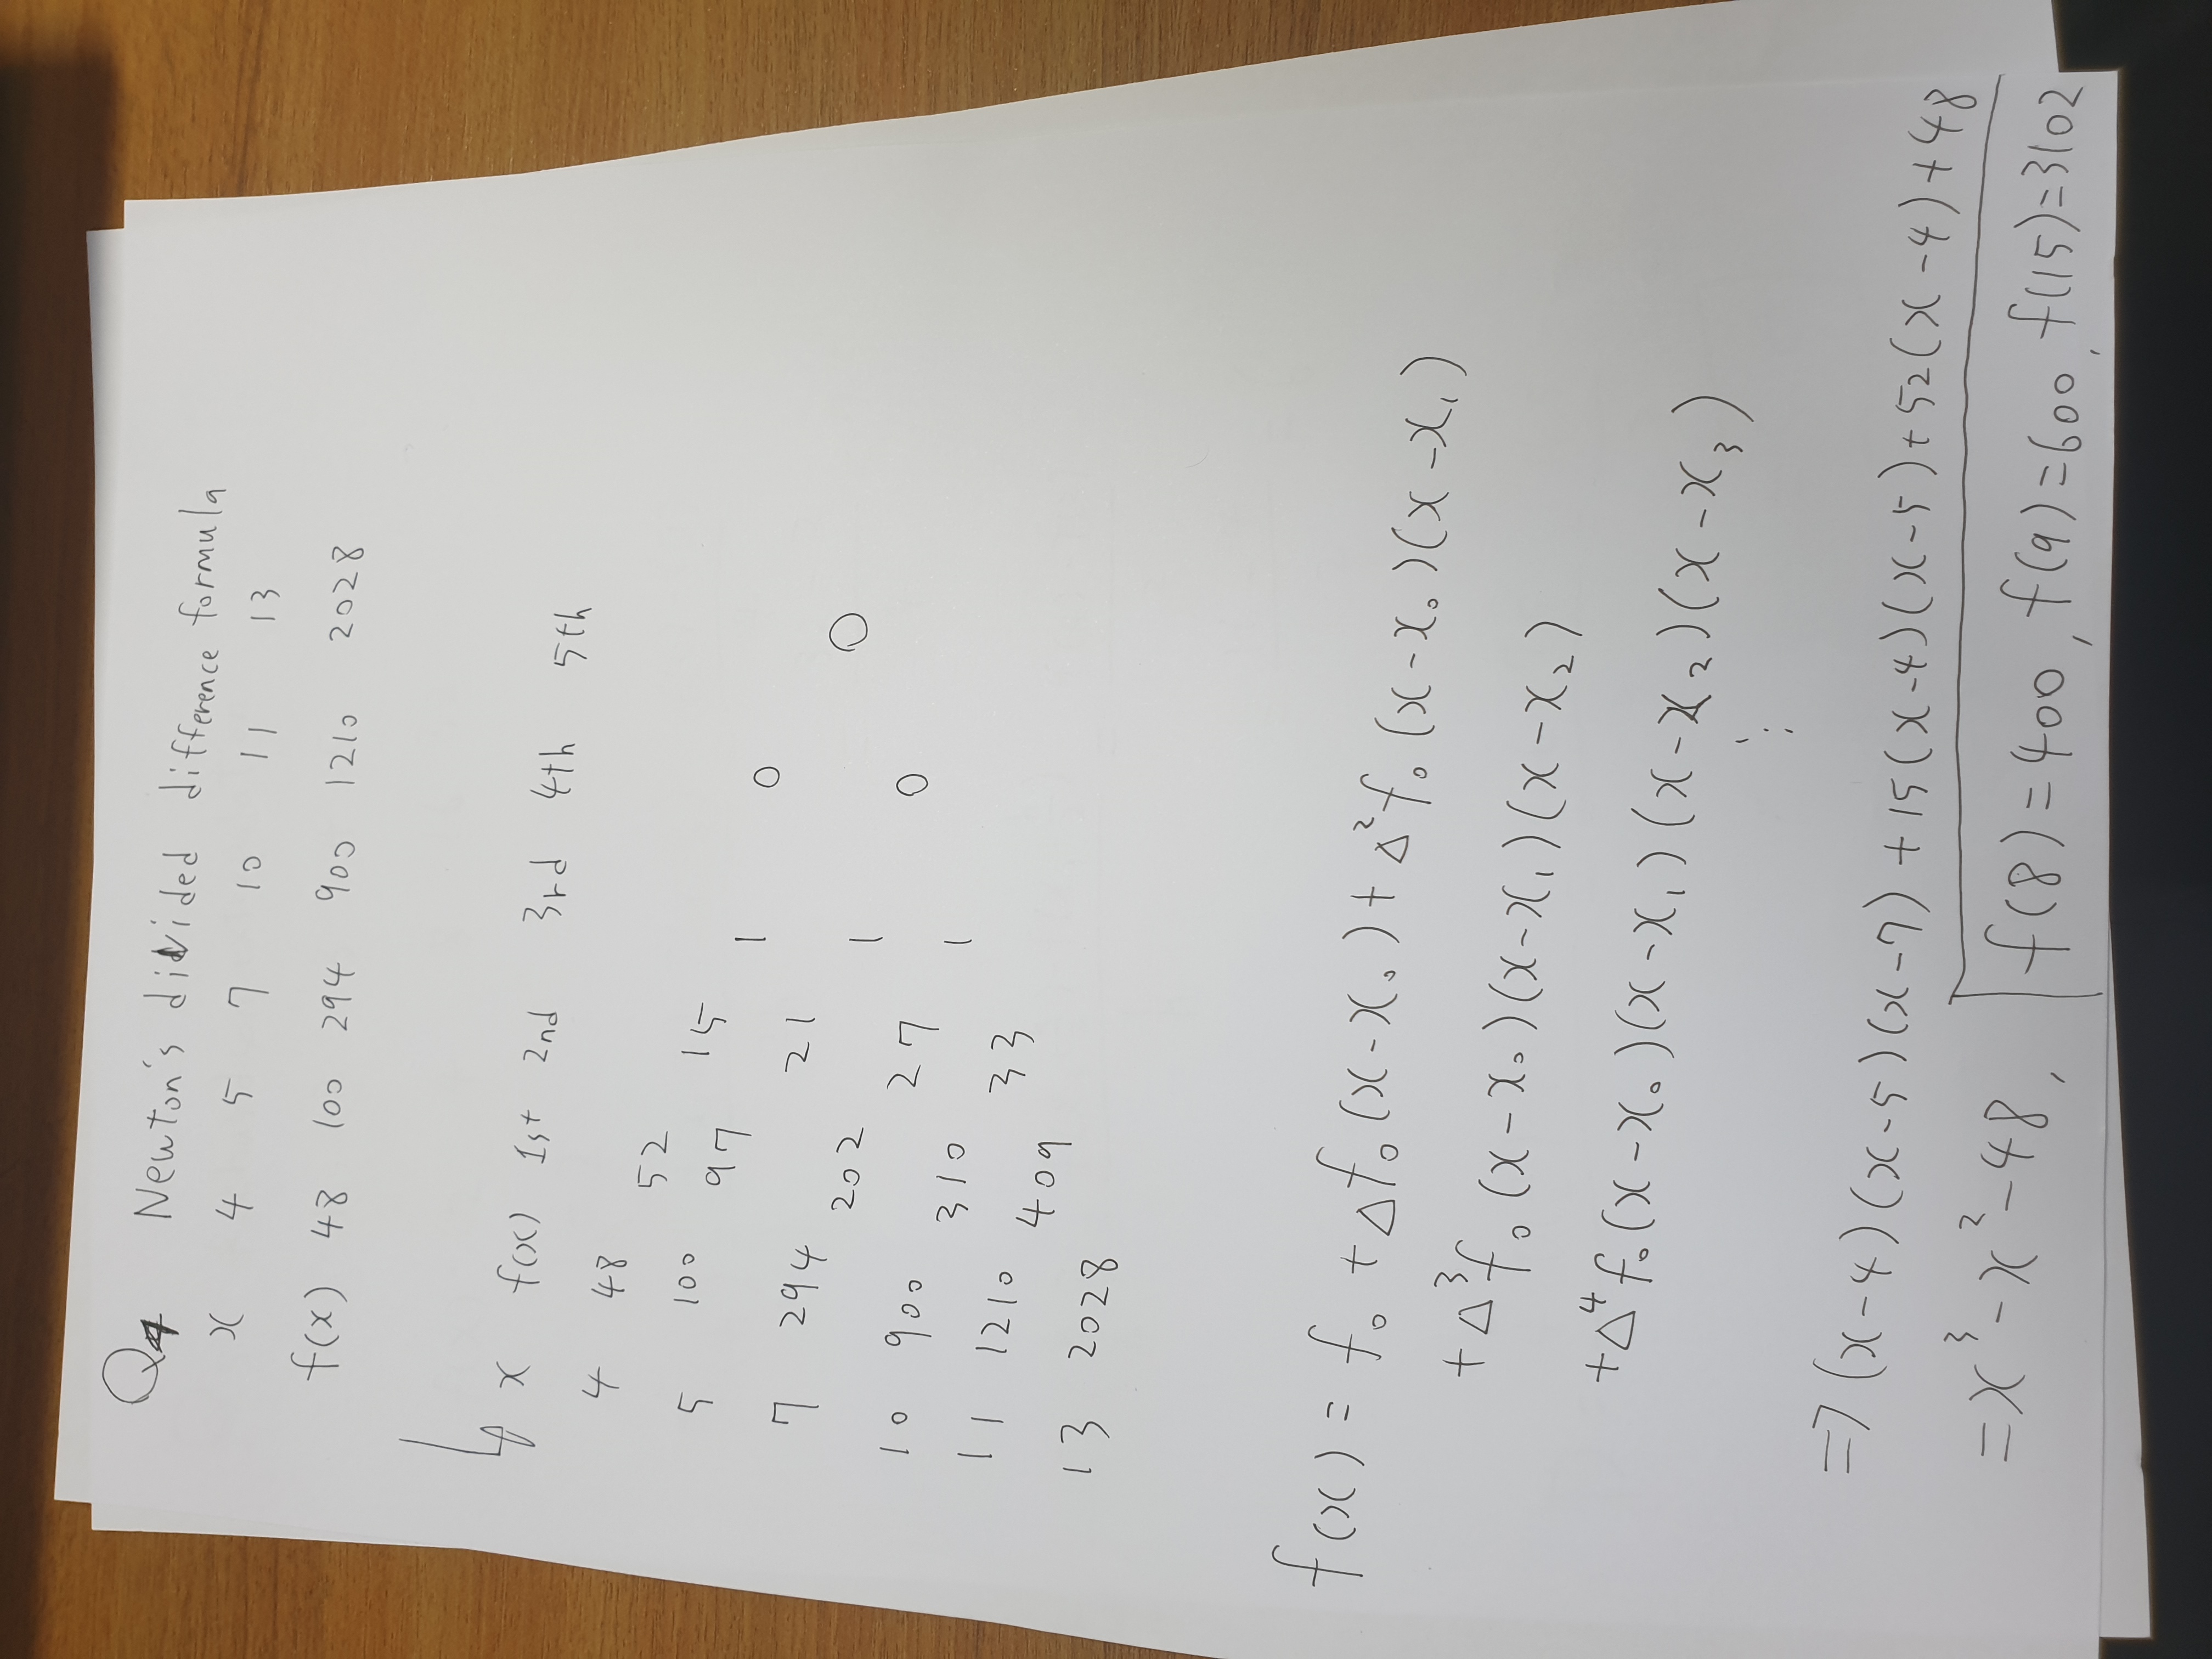 Q4 Newton's divided difference formula
x 4 5 7 10 11 13
f(x) 48 100 294 900 1210 2028
↳ x f(x) 1st 2nd 3rd 4th 5th
4 48
52
5 100 15
97 1 0
7 294 21
202 1 0
10 900 27 0
310 1
11 1210 33
409
13 2028
f(x) = f₀ + Δf₀(x-x₀) + Δ²f₀(x-x₀)(x-x₁)
+Δ³f₀(x-x₀)(x-x₁)(x-x₂)
+Δ⁴f₀(x-x₀)(x-x₁)(x-x₂)(x-x₃)
⋮
=> (x-4)(x-5)(x-7) + 15(x-4)(x-5) + 52(x-4) + 48
= x³-x²-48, f(8)=400, f(9)=600, f(15)=3102